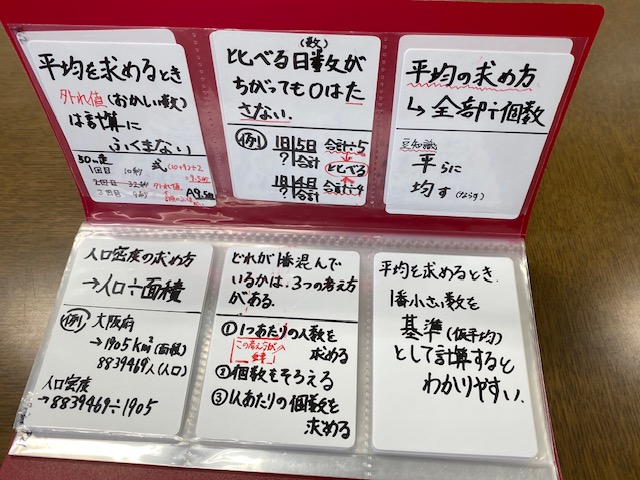 平均を求めるとき
外れ値(おかしい数)
は計算に
ふくまない
50m走
1回目 10秒
2回目 32秒
3回目 9秒
式(10+9)÷2
=9.5秒
外れ値
A9.5秒
(数)
比べる日数が
ちがっても0はた
さない.
例
1日5日 合計÷5
? 合計
比べる
1日4日 合計÷4
? 合計
平均の求め方
↳全部÷個数
豆知識
平らに
均す(ならす)
人口密度の求め方
→人口÷面積
例 大阪府
→1905km²(面積)
8839469人(人口)
人口密度
→8839469÷1905
どれが1番混んで
いるかは、3つの考え方
がある.
①1つあたりの人数を
求める
②個数をそろえる
③1人あたりの個数を
求める
平均を求めるとき.
1番小さい数を
基準(仮平均)
として計算すると
わかりやすい.